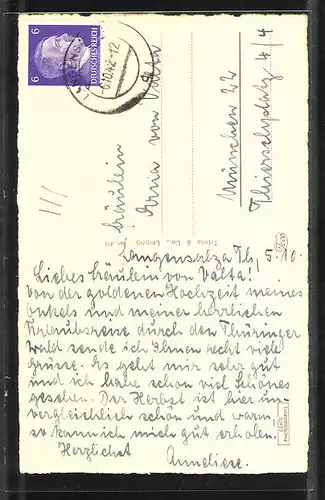 6 6
DEUTSCHES REICH
6.10.42.-12
Fräulein
von Valta
München 22
Thierschplatz 4/4
Trinks & Co., Leipzig
Langensalza Th., 5.10.
Liebes Fräulein von Valta!
Von der goldenen Hochzeit meines
Onkels und meiner herrlichen
Urlaubsreise durch den Thüringer
Wald sende ich Ihnen recht viele
Grüsse. Es geht mir sehr gut
und ich habe schon viel Schönes
gesehen. Der Herbst ist hier un-
vergleichlich schön und warm,
so kann ich mich gut erholen.
Herzlichst
Anneliese.